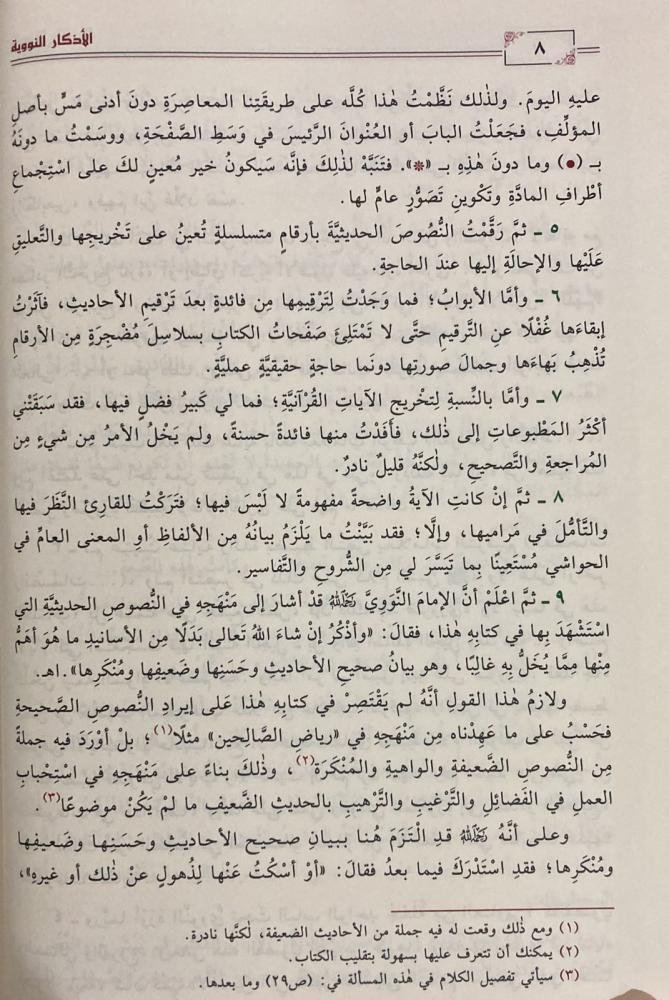 الأذكار النووية
٨
عليهِ اليومَ. ولذٰلك نَظَّمْتُ هٰذا كُلَّه على طريقَتِنا المعاصِرَةِ دونَ أدنى مَسٍّ بأصلِ
المؤلِّفِ، فجَعَلْتُ البابَ أو العُنْوانَ الرَّئيسَ في وَسَطِ الصَّفْحَةِ، ووسَمْتُ ما دونَهُ
بـ (●) وما دونَ هٰذِهِ بـ «*». فتَنَبَّهْ لذٰلِكَ فإنَّه سَيكونُ خير مُعينٍ لكَ على اسْتِجْماعِ
أطْرافِ المادَّةِ وتَكْوينِ تَصَوُّرٍ عامٍّ لها.
٥ ـ ثمَّ رَقَّمْتُ النُّصُوصَ الحديثيَّةَ بأرقامٍ متسلسلةٍ تُعينُ على تَخْريجِها والتَّعليقِ
عَلَيْها والإحالَةِ إليها عندَ الحاجةِ.
٦ ـ وأمَّا الأبوابُ؛ فما وَجَدْتُ لِتَرْقِيمِها مِن فائدةٍ بعدَ تَرْقيمِ الأحاديثِ، فآثَرْتُ
إبقاءَها غُفْلًا عنِ التَّرقيمِ حتَّى لا تَمْتَلِئَ صَفَحاتُ الكتابِ بسلاسِلَ مُضْجِرَةٍ مِن الأرقامِ
تُذْهِبُ بَهاءَها وجمالَ صورتِها دونَما حاجةٍ حقيقيَّةٍ عمليَّةٍ.
٧ ـ وأمَّا بالنِّسبةِ لتخْريجِ الآياتِ القُرْآنيَّةِ؛ فما لي كَبيرُ فضلٍ فيها، فقد سَبَقَتْني
أكْثَرُ المَطْبوعاتِ إلى ذٰلك، فأفَدْتُ منها فائدةً حسنةً، ولم يَخْلُ الأمرُ مِن شيءٍ مِن
المُراجعةِ والتَّصحيحِ، ولٰكنَّهُ قليلٌ نادرٌ.
٨ ـ ثمَّ إنْ كانتِ الآيةُ واضحةً مفهومةً لا لَبْسَ فيها؛ فتَرَكْتُ للقارِئِ النَّظَرَ فيها
والتَّأمُّلَ في مَراميها، وإلَّا؛ فقد بَيَّنْتُ ما يَلْزَمُ بيانُهُ مِن الألفاظِ أوِ المعنى العامِّ في
الحواشي مُسْتَعِينًا بِما تَيَسَّرَ لي مِن الشُّروحِ والتَّفاسيرِ.
٩ ـ ثمَّ اعْلَمْ أنَّ الإمامَ النَّوَوِيَّ ﵀ قدْ أشارَ إلى مَنْهَجِهِ في النُّصوصِ الحديثيَّةِ التي
اسْتَشْهَدَ بِها في كتابِهِ هٰذا، فقالَ: «وأذْكُرُ إنْ شاءَ اللهُ تَعالى بَدَلًا مِن الأسانيدِ ما هُوَ أهَمُّ
مِنْها مِمَّا يُخَلُّ بِهِ غالبًا، وهو بيانُ صحيحِ الأحاديثِ وحَسَنِها وضَعيفِها ومُنْكَرِها». اهـ.
ولازِمُ هٰذا القولِ أنَّهُ لم يَقْتَصِرْ في كتابِهِ هٰذا عَلى إيرادِ النُّصوصِ الصَّحيحةِ
فحَسْبُ على ما عَهِدْناه مِن مَنْهَجِهِ في «رياضِ الصَّالِحين» مثلًا(١)؛ بلْ أوْرَدَ فيه جملةً
مِن النُّصوصِ الضَّعيفةِ والواهيةِ والمُنْكَرَة(٢)، وذٰلكَ بناءً على مَنْهَجِهِ في اسْتِحْبابِ
العملِ في الفَضائِلِ والتَّرْغيبِ والتَّرْهيبِ بالحديثِ الضَّعيفِ ما لمْ يَكُنْ موضوعًا(٣).
وعلى أنَّهُ ﵀ قدِ الْتَزَمَ هُنا ببيانِ صحيحِ الأحاديثِ وحَسَنِها وضَعيفِها
ومُنْكَرِها؛ فقدِ اسْتَدْرَكَ فيما بعدُ فقالَ: «أوْ أسْكُتُ عَنْها لِذُهولٍ عنْ ذٰلك أو غيرِهِ»،
(١) ومع ذٰلك وقعت له فيه جملة من الأحاديث الضعيفة، لٰكنَّها نادرة.
(٢) يمكنك أن تتعرف عليها بسهولة بتقليب الكتاب.
(٣) سيأتي تفصيل الكلام في هٰذه المسألة في: (ص٢٩) وما بعدها.